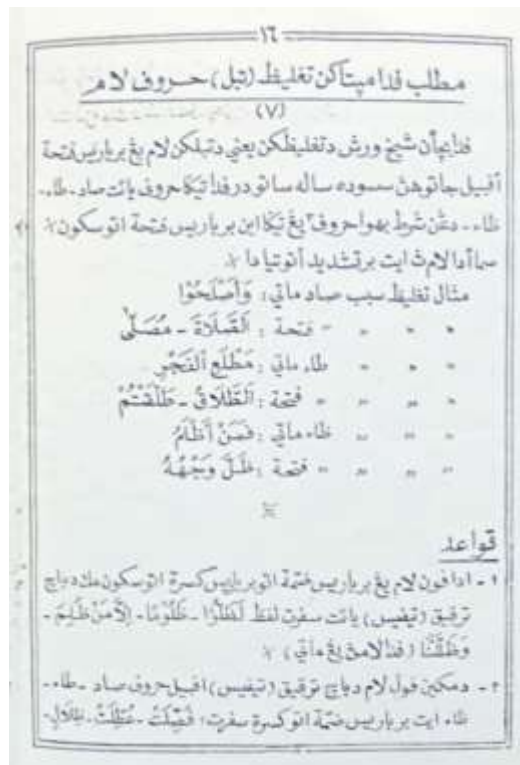 ١٦
مطلب ڤدا ميتاکن تغليظ (تبل) حروف لام
(٧)
ڤدا بچأن شيخ ورش دتغليظکن يعني دتبلکن لام يڠ بر باريس فتحة
اڤبيل جاتوهڽ سسوده ساله ساتو درڤد تيݢ حروف يائت صاد - طاء -
ظاء - دڠن شرط بهوا حروف٢ يڠ تيݢ اين بر باريس فتحة اتو سکون
سام ادا لامڽ ايت برتشديد أتو تيادا
مثال تغليظ سبب صاد ماتي : وَأَصْلَحُوْا
〃 〃 〃 〃 فتحة : اَلصَّلَاةَ - مُصَلًّى
〃 〃 〃 طاء ماتي : مَطْلَعِ الْفَجْرِ
〃 〃 〃 〃 فتحة : اَلطَّلَاقُ - طَلَّقْتُمْ
〃 〃 〃 ظاء ماتي : فَمَنْ أَظْلَمُ
〃 〃 〃 〃 فتحة : ظَلَّ وَجْهُهُ
قواعد
١ - اداڤون لام يڠ بر باريس ضمة اتو بر باريس کسرة اتو سکون مک دباچ
ترقيق (نيڤيس) يائت سڤرت لفظ لَظَلُّوْا - ظَلُوْمًا - اِلَّا مَنْ ظُلِمَ -
وَظَلَّلْنَا (ڤدا لامڽ يڠ ماتي)
٢ - دمکين ڤول لام دباچ ترقيق (نيڤيس) اڤبيل حروف صاد - طاء -
ظاء ايت بر باريس ضمة اتو کسرة سڤرت : فُصِّلَتْ - عُطِّلَتْ - ظِلَالٍ -